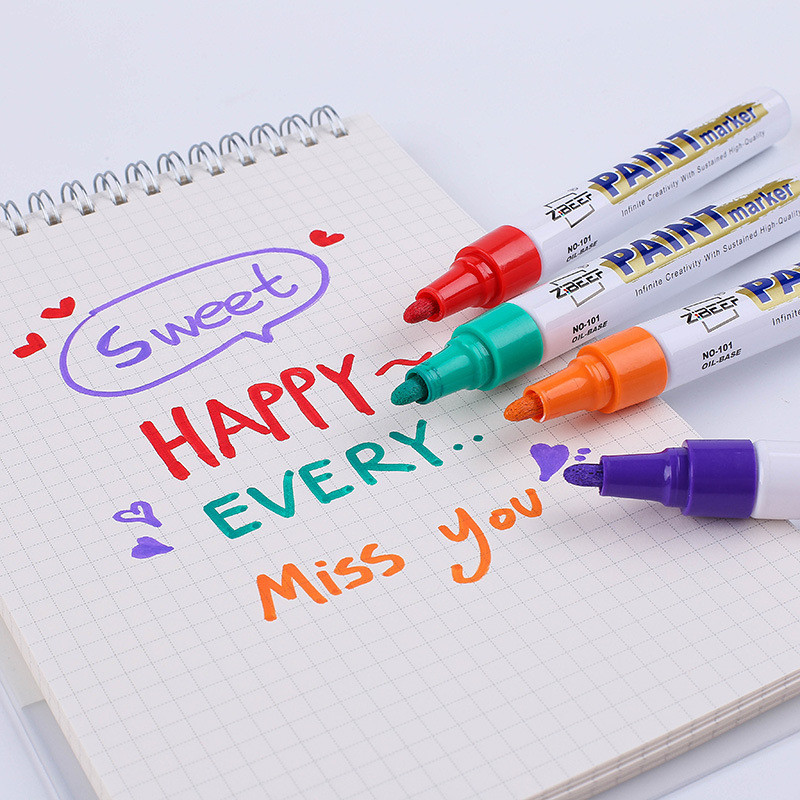 Sweet
HAPPY~
EVERY..
Miss you
ZiBEEF
NO-101
OIL-BASE
PAINT marker
Infinite Creativity With Sustained High-Quality
ZiBEEF
NO-101
OIL-BASE
PAINT marker
Infinite Creativity With Sustained High-Quality
ZiBEEF
NO-101
OIL-BASE
PA